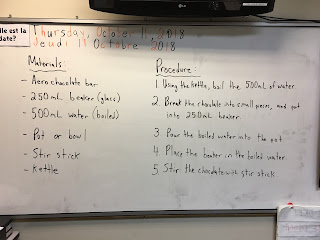 lle est la
date?
Thursday, October 11, 2018
Jeudi 11 Octobre 2018
Materials:
- Aero chocolate bar
- 250mL beaker (glass)
- 500mL water (boiled)
- Pot or bowl
- Stir stick
- Kettle
Procedure:
1. Using the kettle, boil the 500mL of water.
2. Break the chocolate into small pieces, and put
into 250mL beaker.
3. Pour the boiled water into the pot
4. Place the beaker in the boiled water
5. Stir the chocolate with stir stick.